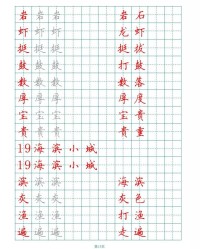 岩 岩 岩 岩 石
虾 虾 虾 龙 虾
挺 挺 挺 挺 拔
鼓 鼓 鼓 打 鼓
数 数 数 数 落
厚 厚 厚 厚 度
宝 宝 宝 宝 贵
贵 贵 贵 贵 重
19 海 滨 小 城
19 海 滨 小 城
滨 滨 滨 海 滨
灰 灰 灰 灰 色
渔 渔 渔 打 渔
遍 遍 遍 走 遍